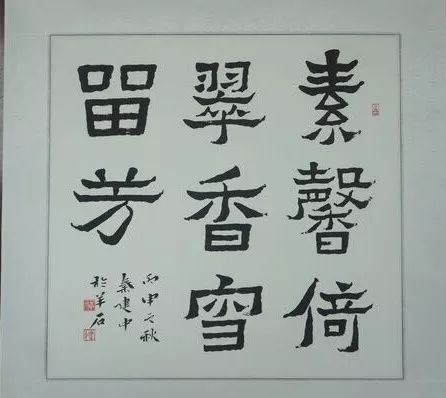 素馨倚
翠香雪
留芳
丙申之秋
秦建中
於羊石